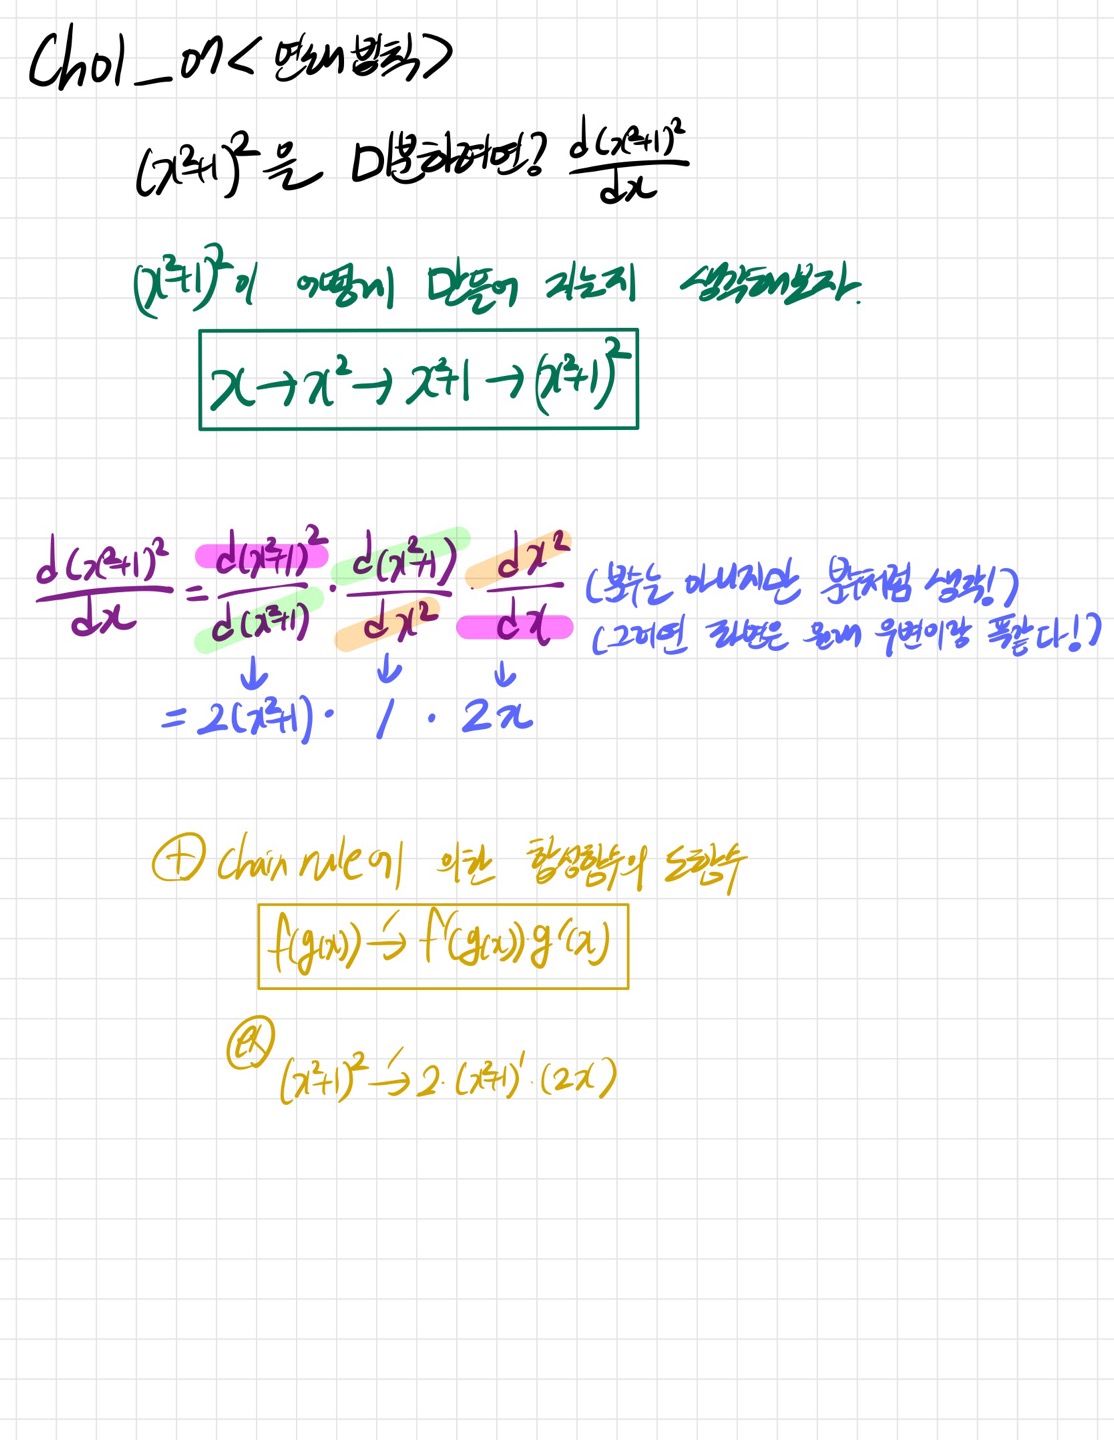 Ch01_07<연쇄법칙>
(x²+1)²을 미분하려면? d(x²+1)²/dx
(x²+1)²이 어떻게 만들어 지는지 생각해보자.
x→x²→x²+1→(x²+1)²
d(x²+1)²/dx = d(x²+1)²/d(x²+1) · d(x²+1)/dx² · dx²/dx (분수는 아니지만 분수처럼 생각!)
(그러면 좌변은 원래 우변이랑 똑같다!)
↓ ↓ ↓
= 2(x²+1) · 1 · 2x
⊕ Chain rule에 의한 합성함수의 도함수
f(g(x)) →′ f′(g(x))·g′(x)
ex
(x²+1)² →′ 2·(x²+1)¹·(2x)